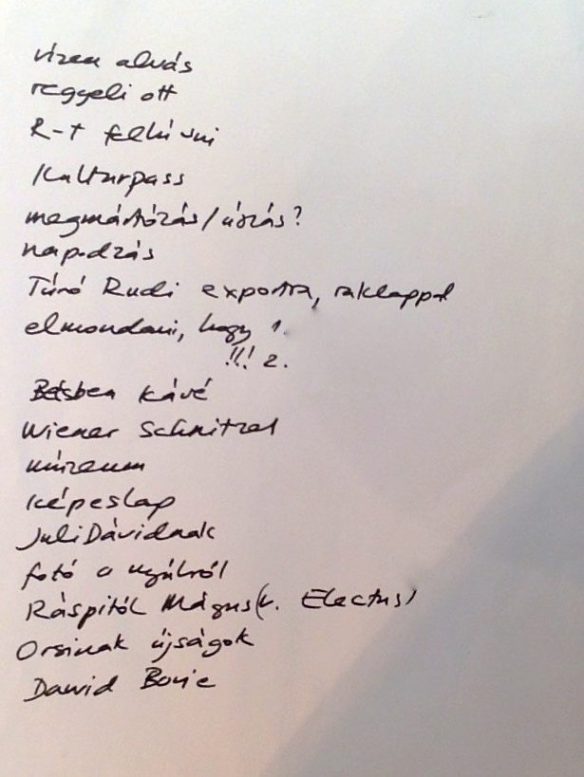 vizen alvás
reggeli ott
R-t felhívni
Kulturpass
megmártózás/úszás?
napozás
Túró Rudi exportra, raklappal
elmondani, hogy 1.
!!! 2.
Bécsben kávé
Wiener Schnitzel
múzeum
képeslap
Juli Dávidnak
fotó a nyúlról
Ráspitól Mágus (v. Electus)
Orsinak újságok
Dawid Bowie